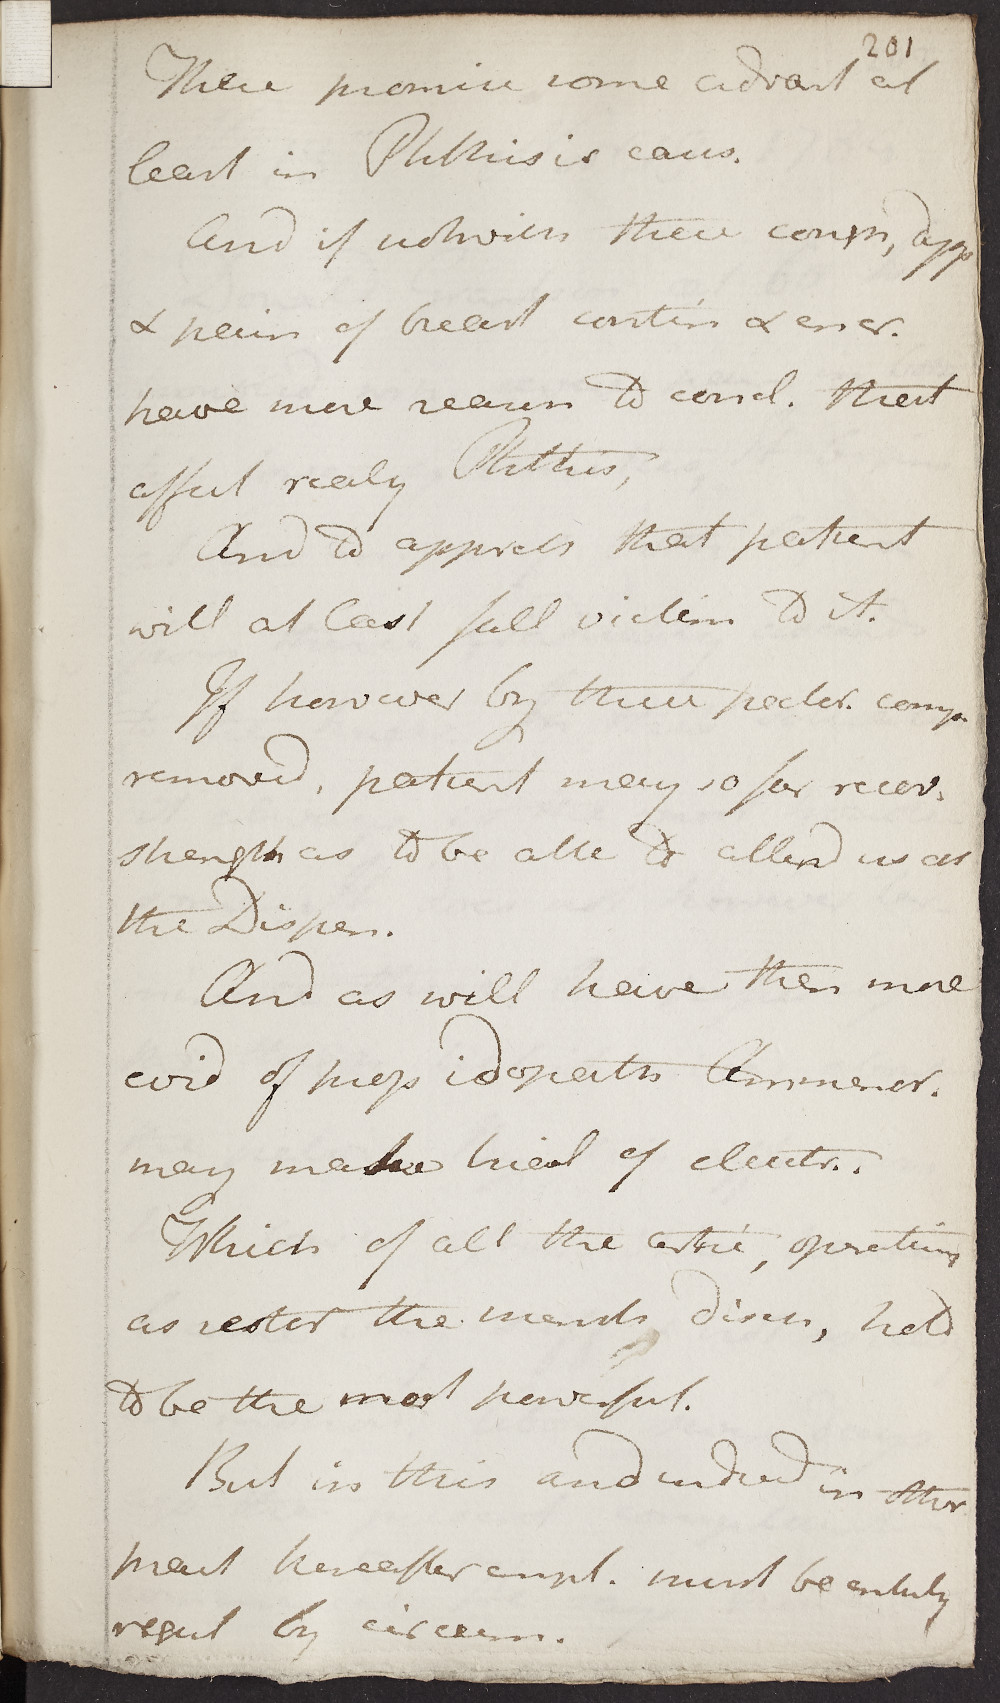 201
These promise some advant at
least in Phthisis caus.
And if notwith these cough, dysp
& pain of breast contin & encr.
have more reason to concl. that
affect realy Phthis,
And to appreh that patient
will at last fall victim to it.
If however by these pector. comp.
removed, patient may so far recov.
strength as to be able to attend us at
the Dispen.
And as will have then more
evid of preps idopath Ammenor.
may make trial of electr..
Which of all the artic, operating
as restor the menstr discn, held
to be the most powerful.
But in this and indeed in other
pract hereafter empl. must be entirely
regul by circum.